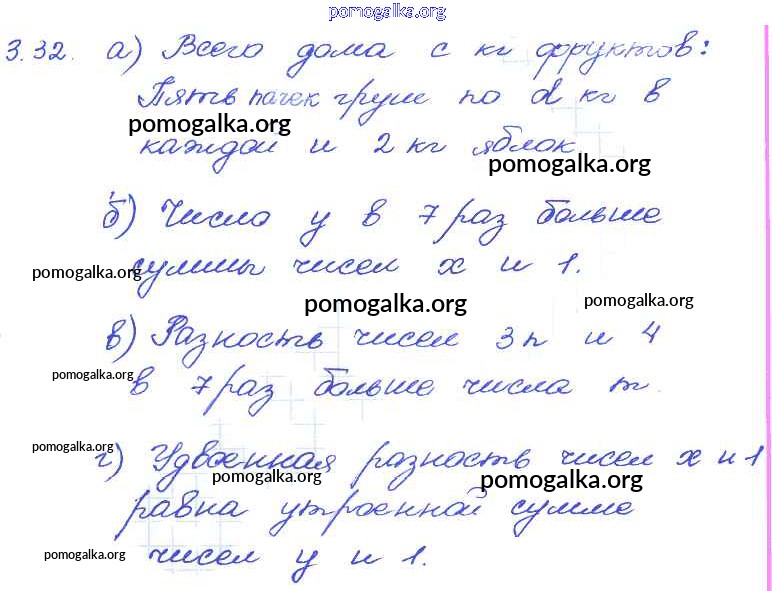 pomogalka.org
3.32. а) Всего дома с кг фруктов:
Пять пачек груш по d кг в
pomogalka.org
каждой и 2 кг яблок
pomogalka.org
б) Число y в 7 раз больше
pomogalka.org суммы чисел x и 1.
pomogalka.org pomogalka.org
в) Разность чисел 3n и 4
pomogalka.org
в 7 раз больше числа m.
pomogalka.org
г) Удвоенная разность чисел x и 1
pomogalka.org pomogalka.org
равна утроенной сумме
pomogalka.org чисел y и 1.